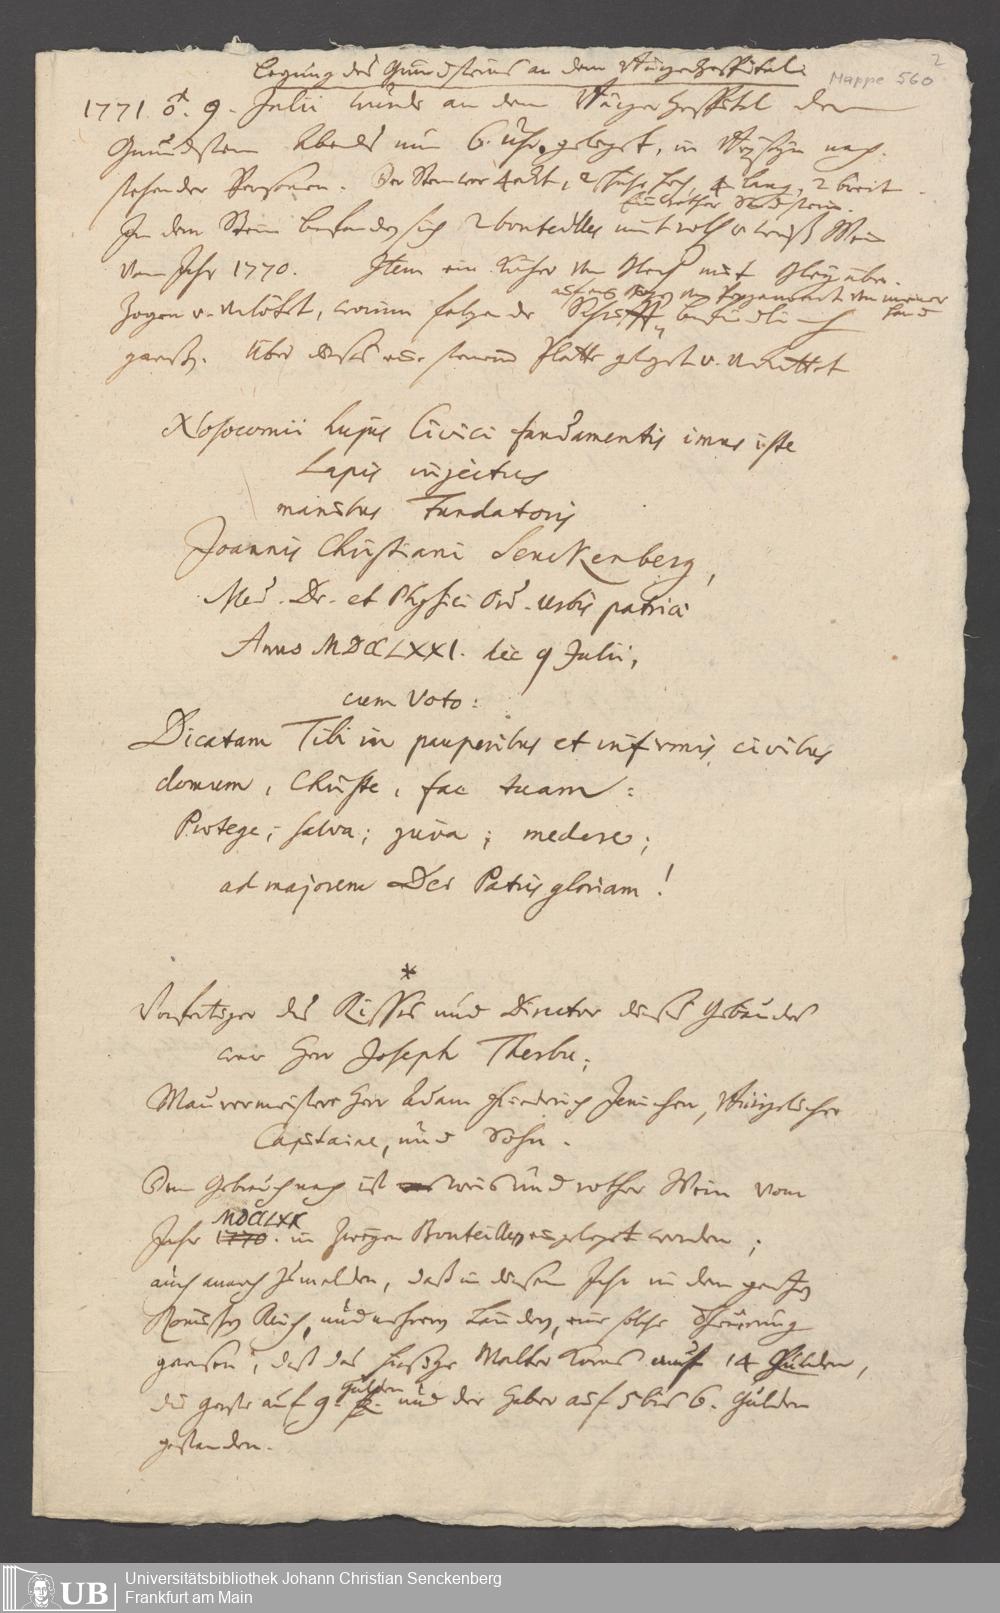 Legung des Grundsteins an dem Bürgerhospital.
Mappe 560
2
1771 ♂. 9. Julii wurde an dem Bürger Hospital der
Grundstein Abends um 6. Uhr gelegt, in Beyseyn nach-
stehender Personen. Der Stein war 4eckt, 2 Schuhe hoch, 4 lang, 2 breit.
Ein rother Sandstein.
In dem Stein befanden sich 2 bouteilles mit roth u. weiß Wein
vom Jahr 1770. Item ein von Blech mit Bley über-
Pergament von meiner Hand
zogen u. verlöht, worinn folgende Schrifft befindlich
gewest. Über dieses eine steinerne Platte gelegt u. verkittet
Nosocomii hujus Civici fundamentis imus iste
Lapis injectus
manibus Fundatoris
Joannis Christiani Senckenberg,
Med. Dr. et Physici Ord. urbis patriae
Anno MDCCLXXI. die 9 Julii,
cum Voto:
Dicatam Tibi in pauperibus et infirmis civibus
domum, Christe, fac tuam:
Protege; salva; juva; medere;
ad majorem Dei Patris gloriam!
*
Verfertiger des Risses und Director dieses Gebäudes
war Herr Joseph Therbu;
Mauermeister Herr Adam Friedrich Jenichen, Bürgerlicher
Capitaine, und Sohn.
Dem Gebrauch nach ist weis und rother Wein vom
MDCCLXX
Jahr 1770. in zweyen Bouteillen eingelegt worden;
auch annoch zu melden, daß in diesem Jahr in dem gantzen
Römischen Reich, und mehreren Landen, eine solche Theuerung
gewesen, daß das hiesige Malter Korn auf 14 Gulden,
die Gerste auf 9. Gulden und der Haber auf 5 bis 6. Gulden
gestanden.
UB
Universitätsbibliothek Johann Christian Senckenberg
Frankfurt am Main